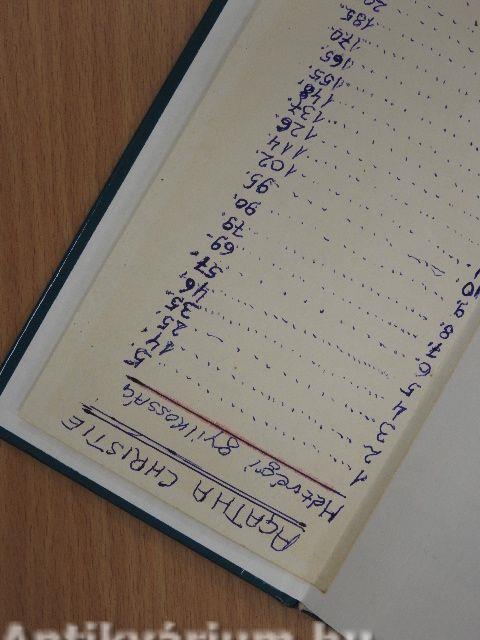 AGATHA CHRISTIE
Hétvégi gyilkosság
1 ........ 5.
2 ........ 14.
3 ........ 25.
4 ........ 35.
5 ........ 46.
6. ........ 57.
7. ........ 69.
8. ........ 79.
9. ........ 90.
10. ........ 95.
102.
114.
126.
137.
148.
155.
165.
170.
185.
Antikvárium.hu